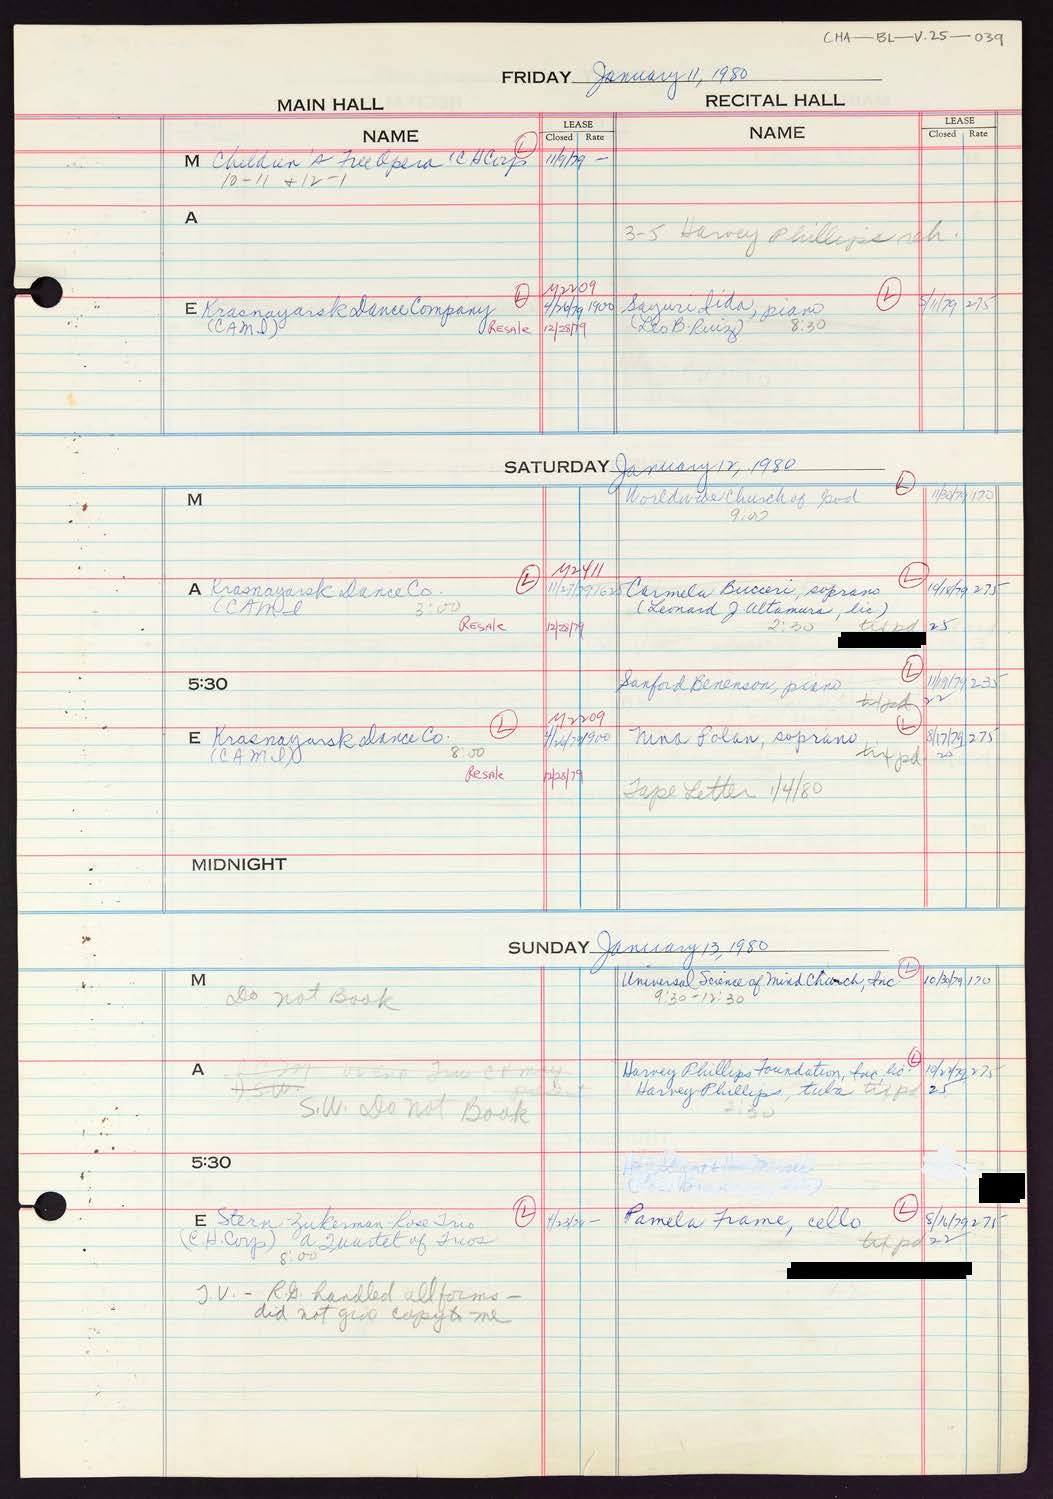 CHA—BL—V.25—039
FRIDAY January 11, 1980
MAIN HALL
RECITAL HALL
NAME
LEASE
Closed Rate
NAME
LEASE
Closed Rate
M Children's Free Opera (C H Corp L 11/9/79 —
10-11 + 12-1
A
3-5 Harvey Phillips reh.
M2209
E Krasnayarsk Dance Company L 4/26/79 1900
(CAMI) Resale 12/28/79
Sayuri Iida, piano L /11/79 275
(Leo B. Ruiz) 8:30
SATURDAY January 12, 1980
M
Worldwide Church of God L 11/30/79 170
9:00
M2411
A Krasnayarsk Dance Co. L 11/27/79
(CAMI 3:00
Resale 12/28/79
Carmela Bucceri, soprano L 275
(Leonard J. Altamura, lic)
2:30 tix pd 25
5:30
Sanford Benenson, piano L 11/19/79 235
tix pd 22
M2209
E Krasnayarsk Dance Co. L 4/26/79 1900
(CAMI) 8:00
Resale 12/28/79
Nina Polan, soprano L 8/17/79 275
tix pd 25
Tape Letter 1/4/80
MIDNIGHT
SUNDAY January 13, 1980
M Do not Book
Universal Science of Mind Church, Inc L 10/30/79 170
9:30-12:30
A
S.W.
S.W. Do not Book
Harvey Phillips Foundation, Inc, lic. L 275
Harvey Phillips, tuba tix pd 25
2:30
5:30
E Stern Zukerman-Rose Trio L —
(C.H. Corp) a Quartet of Trios
8:00
Pamela Frame, cello L 8/16/79 275
tix pd 22
T.V. — R.G. handled all forms —
did not give copy to me